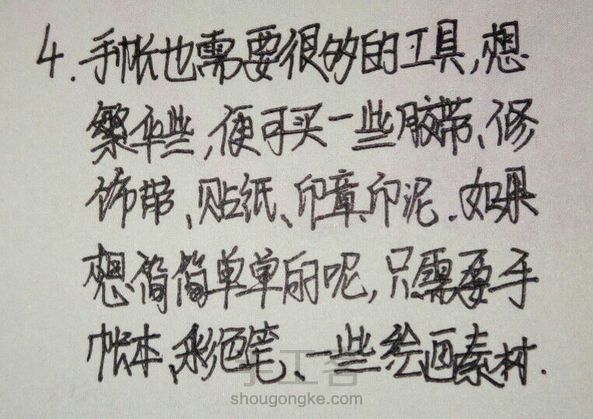 4.手帐也需要很多的工具,想
繁华些,便可买一些胶带、修
饰带、贴纸、印章、印泥.如果
想简简单单的呢,只需要手
帐本、彩色笔、一些绘画素材.
手工客
shougongke.com